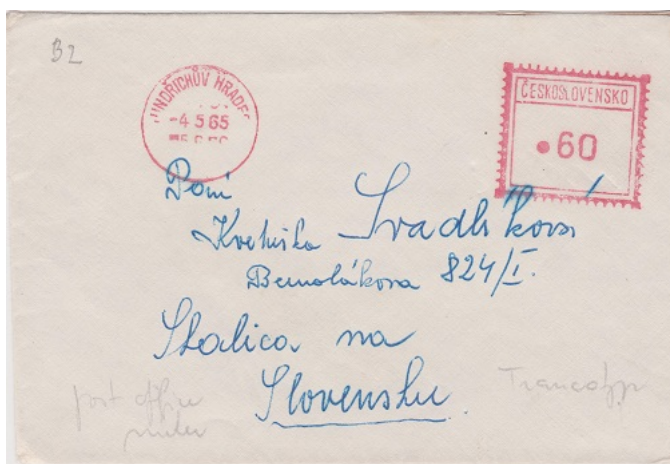 B2
JINDŘICHŮV HRADEC
-4 5 65
ČESKOSLOVENSKO
•60
Paní
Květuška Svadlíková
Bernolákova 824/I.
Skalica na
Slovensku
post office
meter